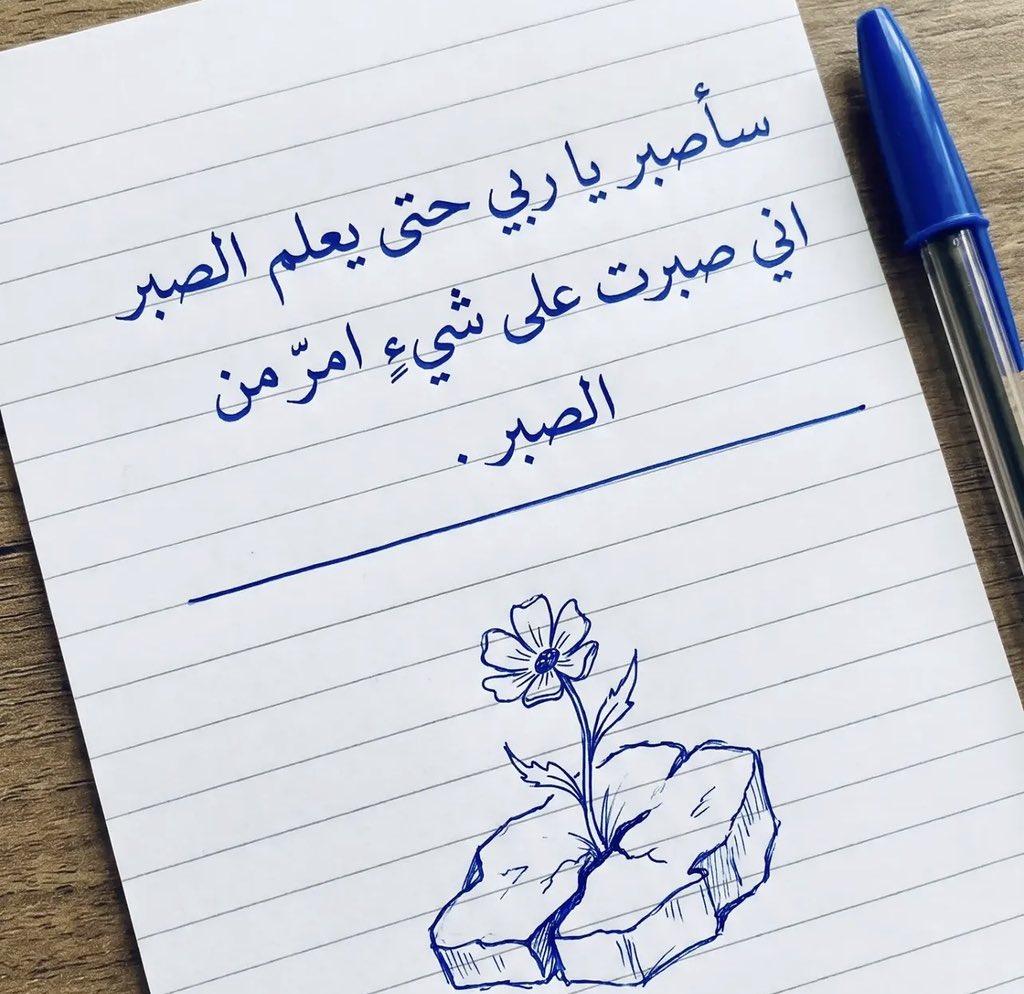 سأصبر يا ربي حتى يعلم الصبر
اني صبرت على شيءٍ امرّ من
الصبر .